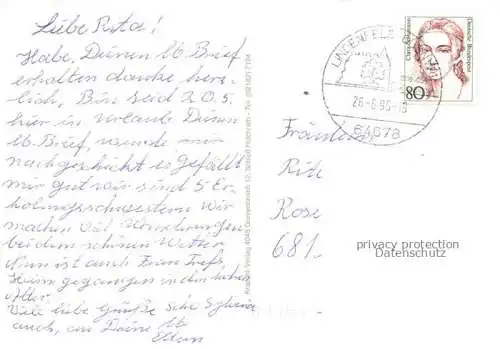 Liebe Rita!
Habe, Deinen lb. Brief
erhalten danke herz-
lich, Bin seid 20.5.
hier in Urlaub Deinen
lb. Brief, wurde mir
nachgeschickt es gefällt
mir gut wir sind 5 Er-
holungsschwestern Wir
machen viel Wanderungen
bei dem schönen Wetter
Nun ist auch Frau
Heim gegangen in den hohen
Alter.
Viele liebe Grüße Schw. Sylveria
auch, an Deine lb.
Eltern
Krapohl-Verlag 4048 Grevenbroich 12, Schloß Hülchrath
LINDENFELS
26.-6.95.-15
64678
Deutsche Bundespost
80
Fräulein
Rita
Rose
681.
privacy protection
Datenschutz